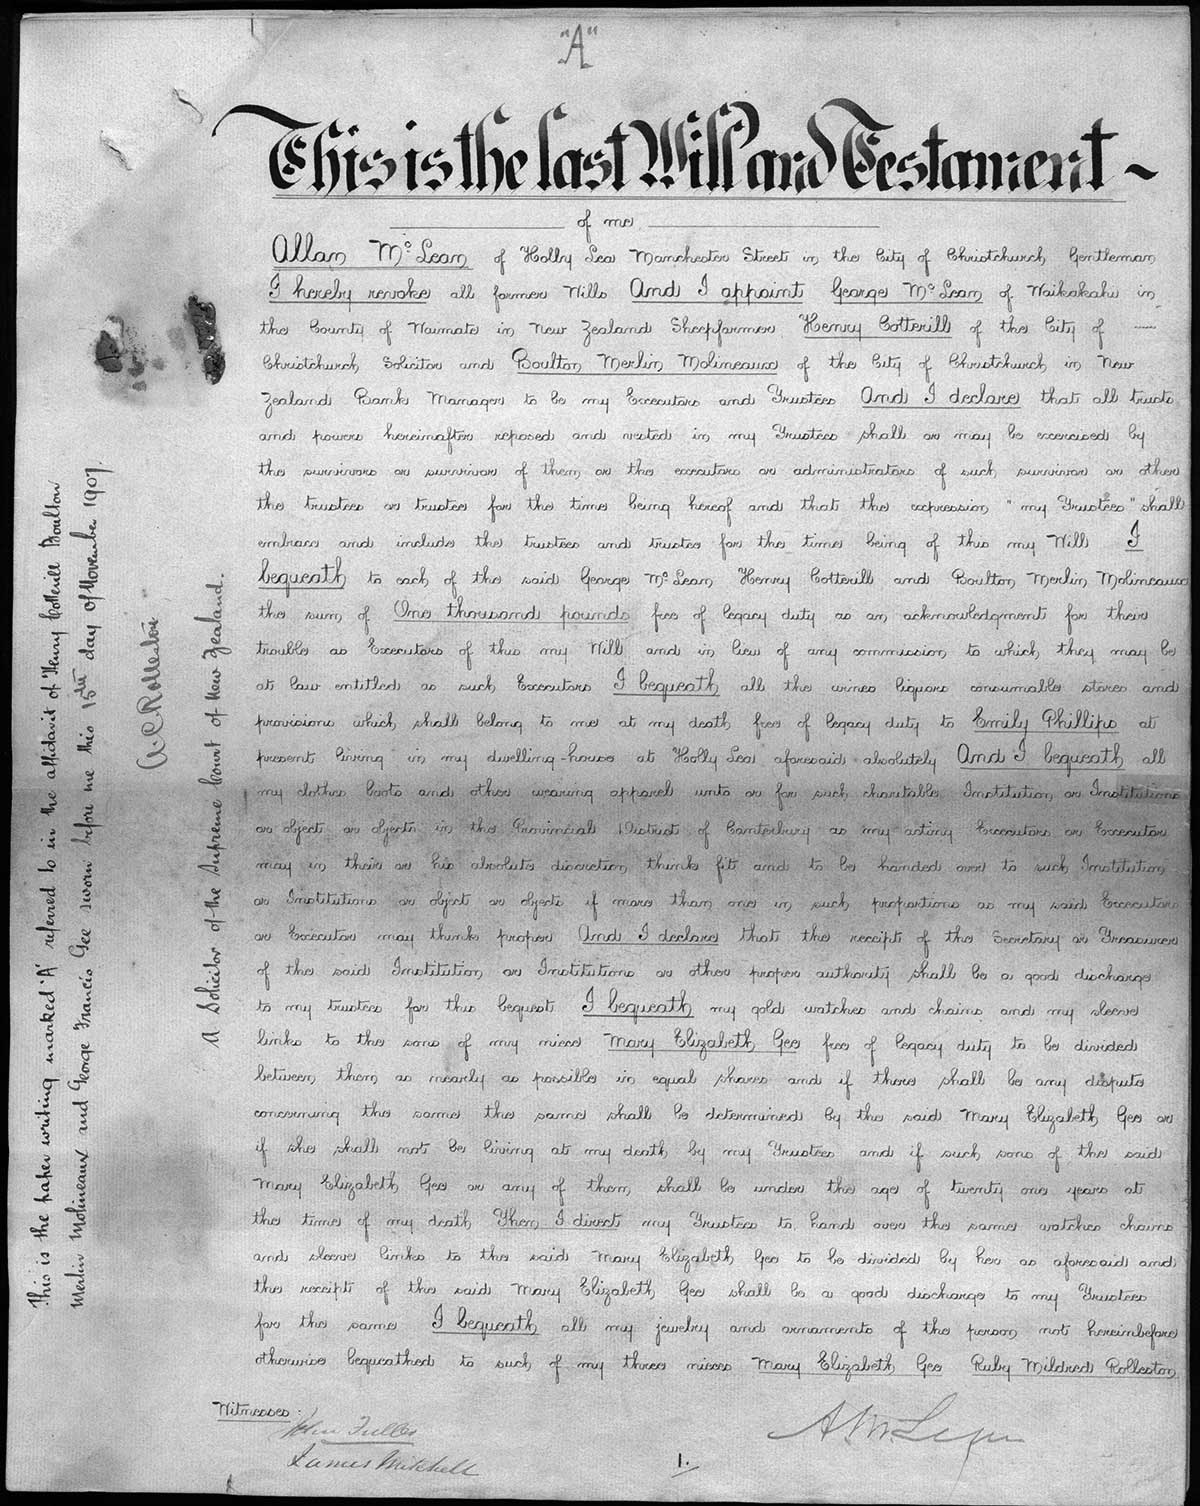 "A"
This is the last Will and Testament ~
of me
Allan McLean of Holly Lea Manchester Street in the City of Christchurch Gentleman
I hereby revoke all former Wills And I appoint George McLean of Waikakahi in
the County of Waimate in New Zealand Sheepfarmer Henry Cotterill of the City of
Christchurch Solicitor and Boulton Merlin Molineaux of the City of Christchurch in New
Zealand Bank Manager to be my Executors and Trustees And I declare that all trusts
and powers hereinafter reposed and vested in my Trustees shall or may be exercised by
the survivors or survivor of them or the executors or administrators of such survivor or other
the trustees or trustee for the time being hereof and that the expression "my Trustees" shall
embrace and include the trustees and trustee for the time being of this my Will I
bequeath to each of the said George McLean Henry Cotterill and Boulton Merlin Molineaux
the sum of One thousand pounds free of legacy duty as an acknowledgment for their
trouble as Executors of this my Will and in lieu of any commission to which they may be
at law entitled as such Executors I bequeath all the wines liquors consumable stores and
provisions which shall belong to me at my death free of legacy duty to Emily Phillips at
present living in my dwelling-house at Holly Lea aforesaid absolutely And I bequeath all
my clothes boots and other wearing apparel unto or for such charitable Institution or Institutions
or object or objects in the Provincial District of Canterbury as my acting Executors or Executor
may in their or his absolute discretion think fit and to be handed over to such Institution
or Institutions or object or objects if more than one in such proportions as my said Executors
or Executor may think proper And I declare that the receipt of the Secretary or Treasurer
of the said Institution or Institutions or other proper authority shall be a good discharge
to my trustees for this bequest I bequeath my gold watches and chains and my sleeve
links to the sons of my niece Mary Elizabeth Gee free of legacy duty to be divided
between them as nearly as possible in equal shares and if there shall be any dispute
concerning the same the same shall be determined by the said Mary Elizabeth Gee or
if she shall not be living at my death by my Trustees and if such sons of the said
Mary Elizabeth Gee or any of them shall be under the age of twenty one years at
the time of my death Then I direct my Trustees to hand over the same watches chains
and sleeve links to the said Mary Elizabeth Gee to be divided by her as aforesaid and
the receipt of the said Mary Elizabeth Gee shall be a good discharge to my Trustees
for the same I bequeath all my jewelry and ornaments of the person not hereinbefore
otherwise bequeathed to such of my three nieces Mary Elizabeth Gee Ruby Mildred Rolleston
Witnesses:
John Fuller
James Mitchell
A McLean
1.
This is the paper writing marked 'A' referred to in the affidavit of Henry Cotterill Boulton
Merlin Molineaux and George Francis Gee sworn before me this 15th day of November 1907.
A.C. Rolleston
A Solicitor of the Supreme Court of New Zealand.